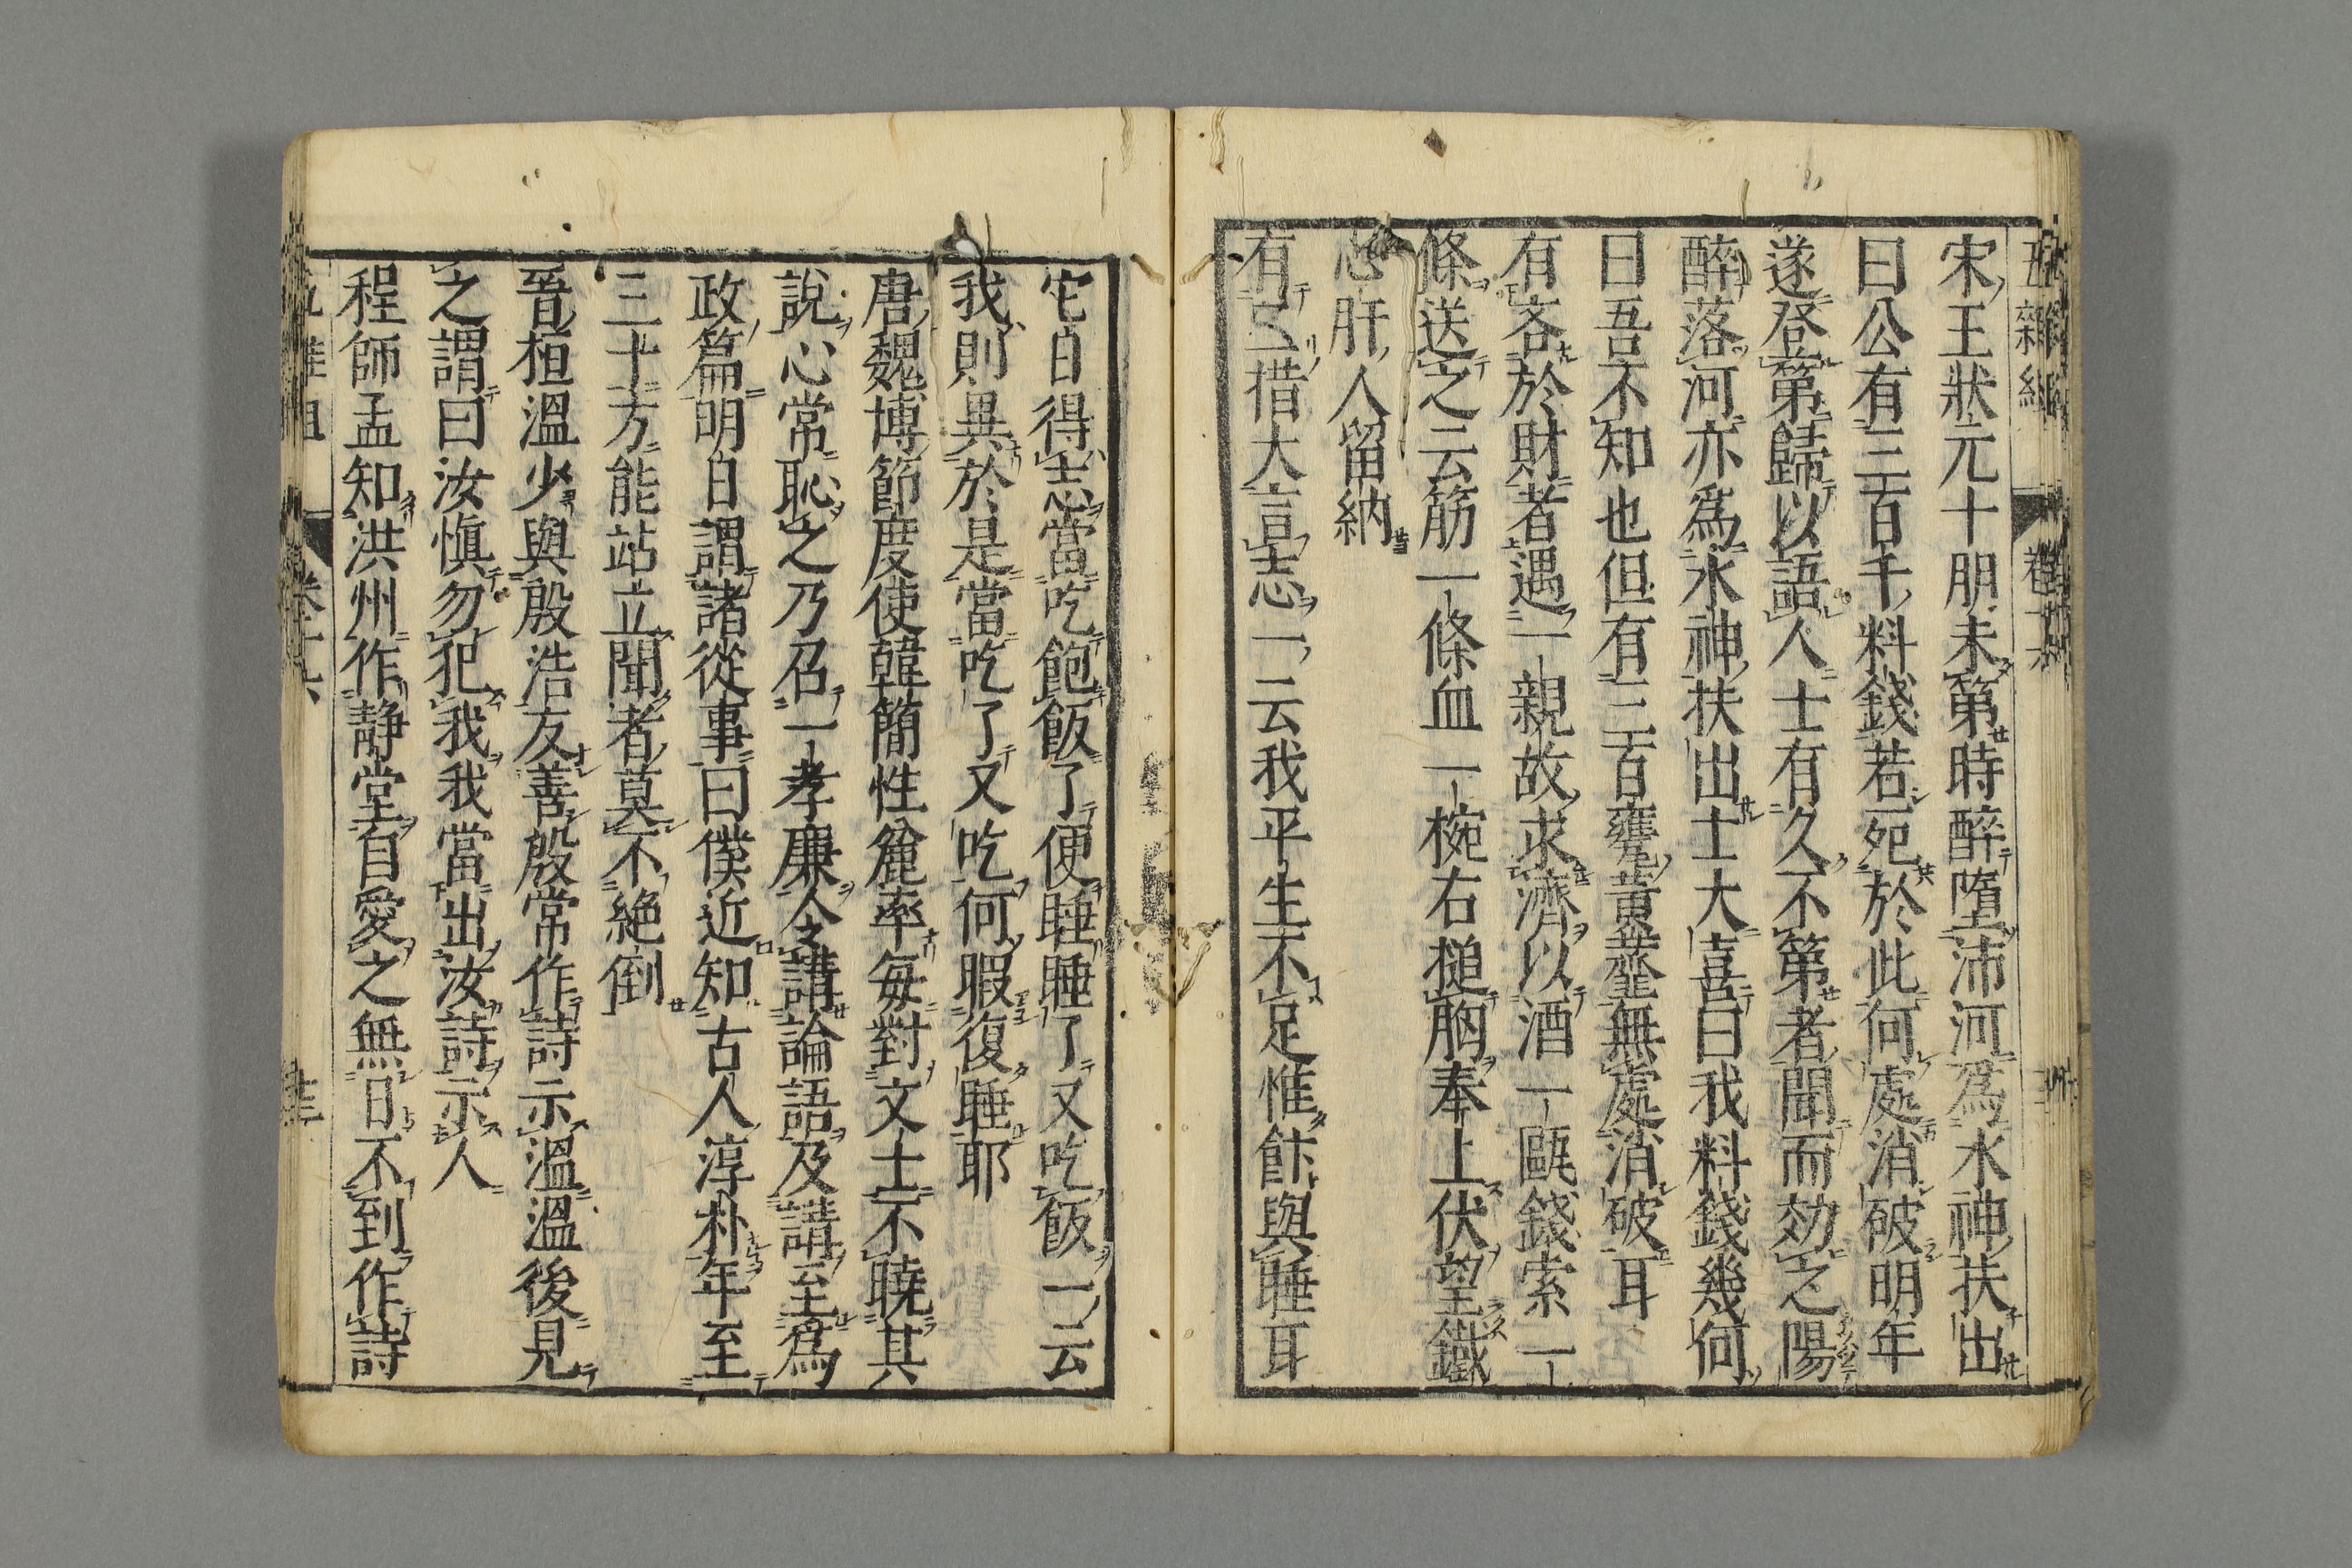 五雜組 卷十六
宋王狀元十朋未第時醉墮沛河爲水神扶出
曰公有三百千料錢若死於此何處消破明年
遂登第歸以語人士有久不第者聞而効之陽
醉落河亦爲水神扶出士大喜曰我料錢幾何
曰吾不知也但有三百甕黃虀無處消破耳
有吝於財者遇一親故求濟以酒一甌錢索一
條送之云筋一條血一椀右搥胸奉上伏望鐵
心肝人留納
有二措大言志一云我平生不足惟飯與睡耳
它日得志當吃飽飯了便睡睡了又吃飯一云
我則異於是當吃了又吃何暇復睡耶
唐魏博節度使韓簡性麄率每對文士不曉其
說心常恥之乃召一孝廉人令講論語及講至爲
政篇明日謂諸從事曰僕近知古人淳朴年至
三十方能站立聞者莫不絕倒
晉桓溫少與殷浩友善殷常作詩示溫溫後見
之謂曰汝慎勿犯我我當出汝詩示人
程師孟知洪州作静堂自愛之無日不到作詩
卷十六